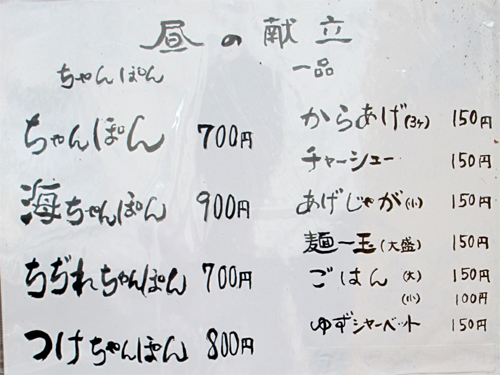 昼の献立
ちゃんぽん
ちゃんぽん 700円
海ちゃんぽん 900円
ちぢれちゃんぽん 700円
つけちゃんぽん 800円
一品
からあげ(3ヶ) 150円
チャーシュー 150円
あげじゃが(小) 150円
麺一玉(大盛) 150円
ごはん (大) 150円
(小) 100円
ゆずシャーベット 150円